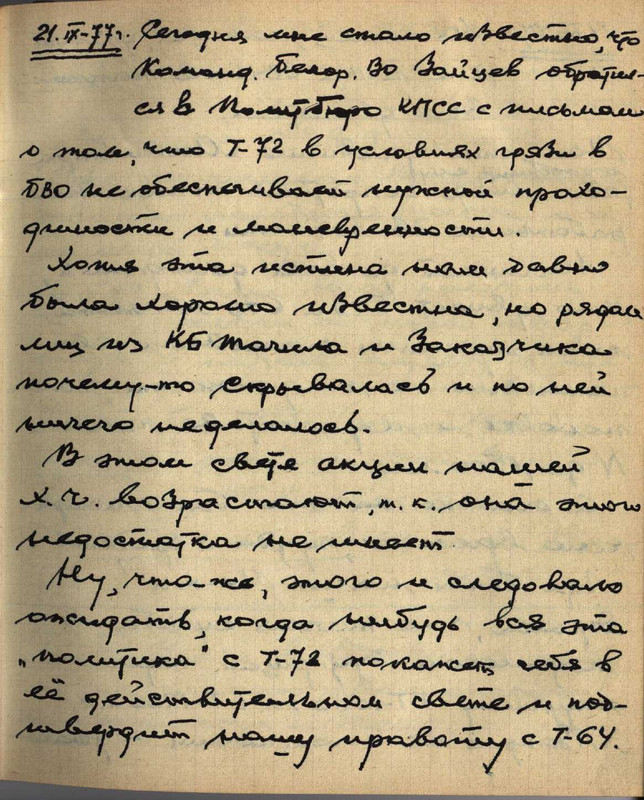 21.IX-77г. Сегодня мне стало известно, что
Команд. Белор. ВО Зайцев обратил-
ся в Политбюро КПСС с письмом
о том, что Т-72 в условиях грязи в
БВО не обеспечивает нужной прохо-
димости и маневренности.
Хотя эта истина нам давно
была хорошо известна, но рядом
лиц из КБ Тагила и Заказчика
почему-то скрывалась и по ней
ничего не делалось.
В этом свете акции нашей
х.ч. возрастают, т.к. она этого
недостатка не имеет
Ну, что-же, этого и следовало
ожидать, когда нибудь вся эта
"политика" с Т-72 покажет себя в
её действительном свете и под-
твердит нашу правоту с Т-64.